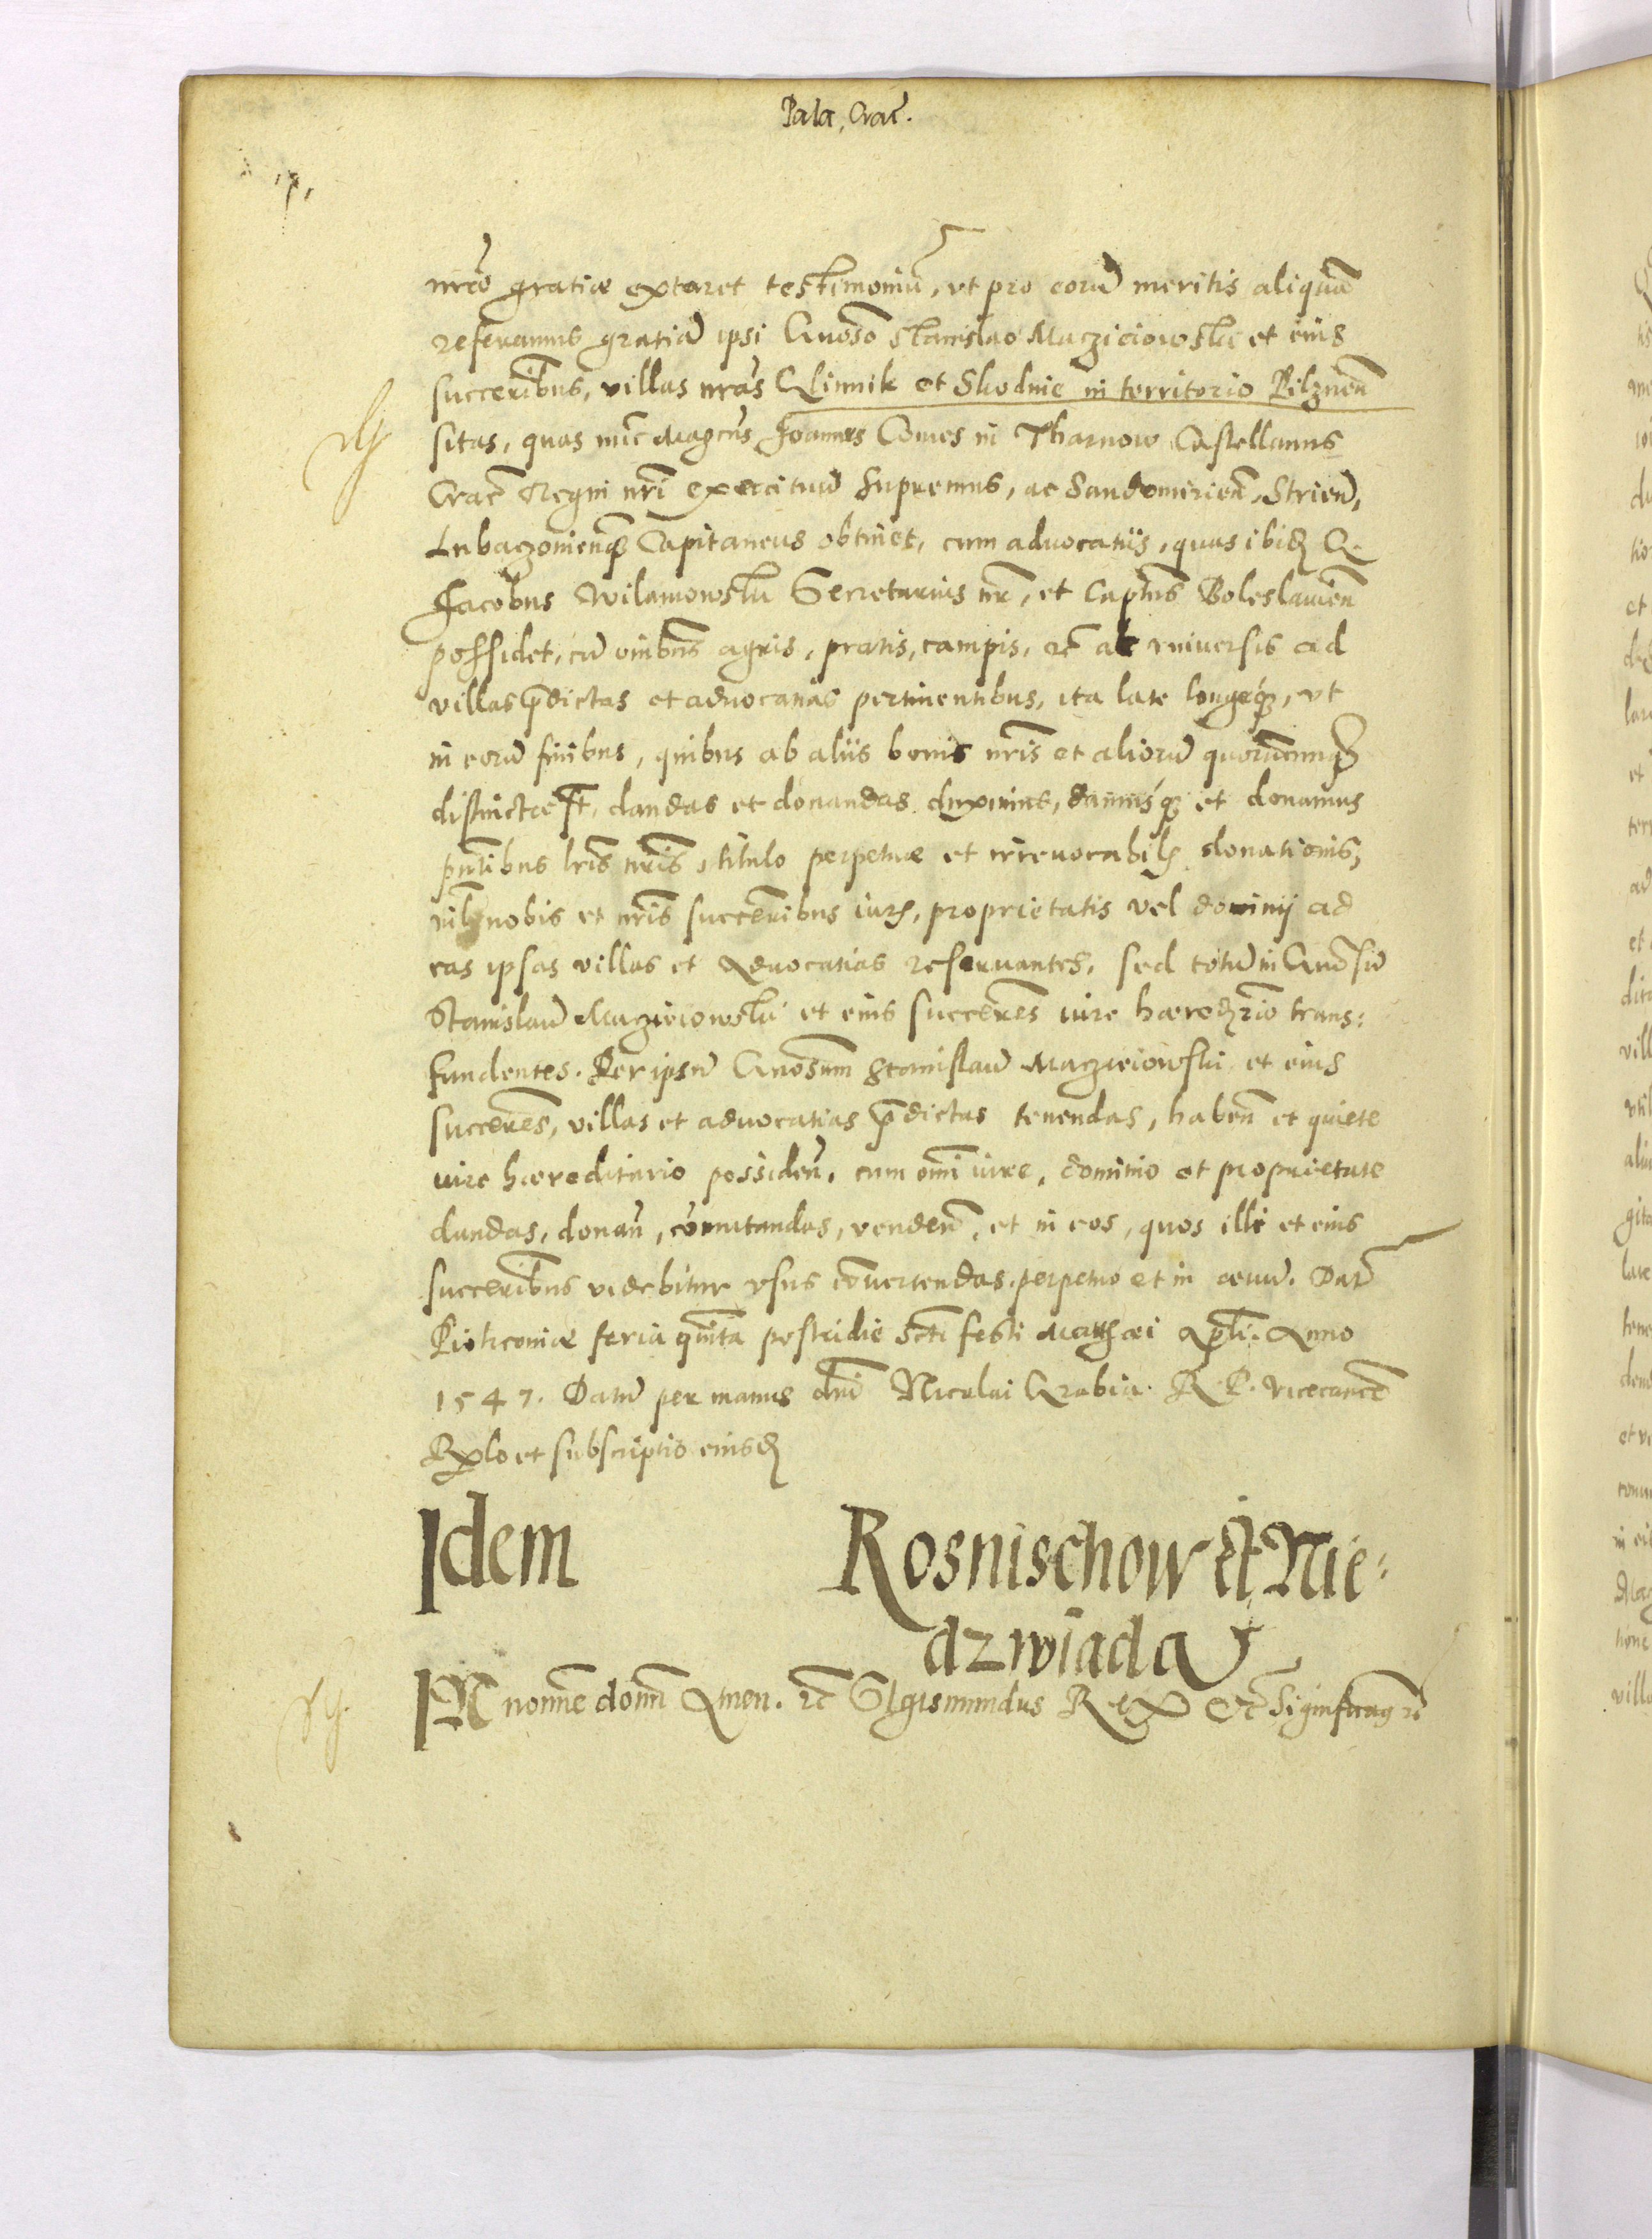 Pala, Crac̃.
nrãe gratiæ extaret testimoniũ, vt pro eorũ meritis aliquã
referamus gratiã ipsi Gnoso Stanislao Macziciowski et eius
succeribus, villas nrãs Glinnik et Skodnie in territorio Pilznen̄
sitas, quas nũc Magcus Joannes Comes in Tharnow Castellanus
Crac̃ Regni nrĩ exercituũ Supremus, ac Sandomirien̄, Strien̄,
Lubaczonienq3 Capitaneus obtinet, cum aduocatiis, quas ibid G.
Jacobus Wilamowski Secretarius nr̃, et Captus Boleslauien̄
possidet, cũ oĩbus agris, pratis, campis, et ac vniuersis ad
villas p̃dictas et aduocatias pertinentibus, ita late longeq3, vt
in eorũ finibus, quibus ab aliis bonis nrĩs et aliorũ quorũcunq3
distinctæ st̃, dandas et donandas duximus, damusq3 et donamus
pñtibus lrĩs nrĩs, titulo perpetuæ et irreuocabilis donationis,
nihil nobis et nrĩs succeribus iuris, proprietatis vel dominij ad
eas ipsas villas et Aduocatias reseruantes, sed totũ in Gnosũ
Stanislaũ Macziciowski et eius succeres iure hæredrĩo trans:
fundentes. Per ipsũ Gnosum Stanislaũ Macziciowski et eius
succeres, villas et aduocatias p̃dictas tenendas, haben̄ et quiete
iure hæreditario possiden̄, cum omĩ iure, dominio et proprietate
dandas, donan̄, cõmutandas, venden̄, et in eos, quos illi et eius
succeribus videbitur vsus cõuertendas, perpetuo et in æuũ. Dat̃
Piotrconiæ feria quĩta postridie Sctĩ festi Matthæi Aplĩ. Anno
1547. Datũ per manus dnĩ Nicolai Grabia. R. P. vicecanc̃
Rela et subscriptio eiusd
Idem Rosnischow et Nie:
dzwiada
IN nomine domĩ Amen. et̃ Sigismundus Rex et̃ Significag et̃